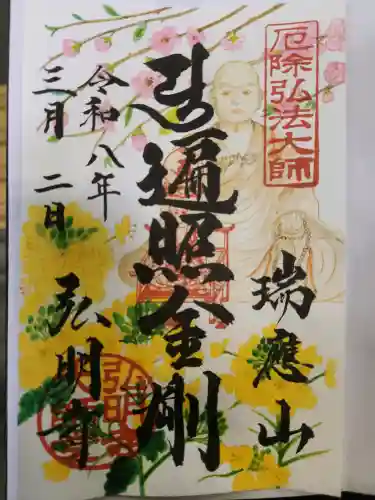 厄除弘法大師
瑞應山
遍照金剛
令和八年
三月二日
弘明寺
弘明寺